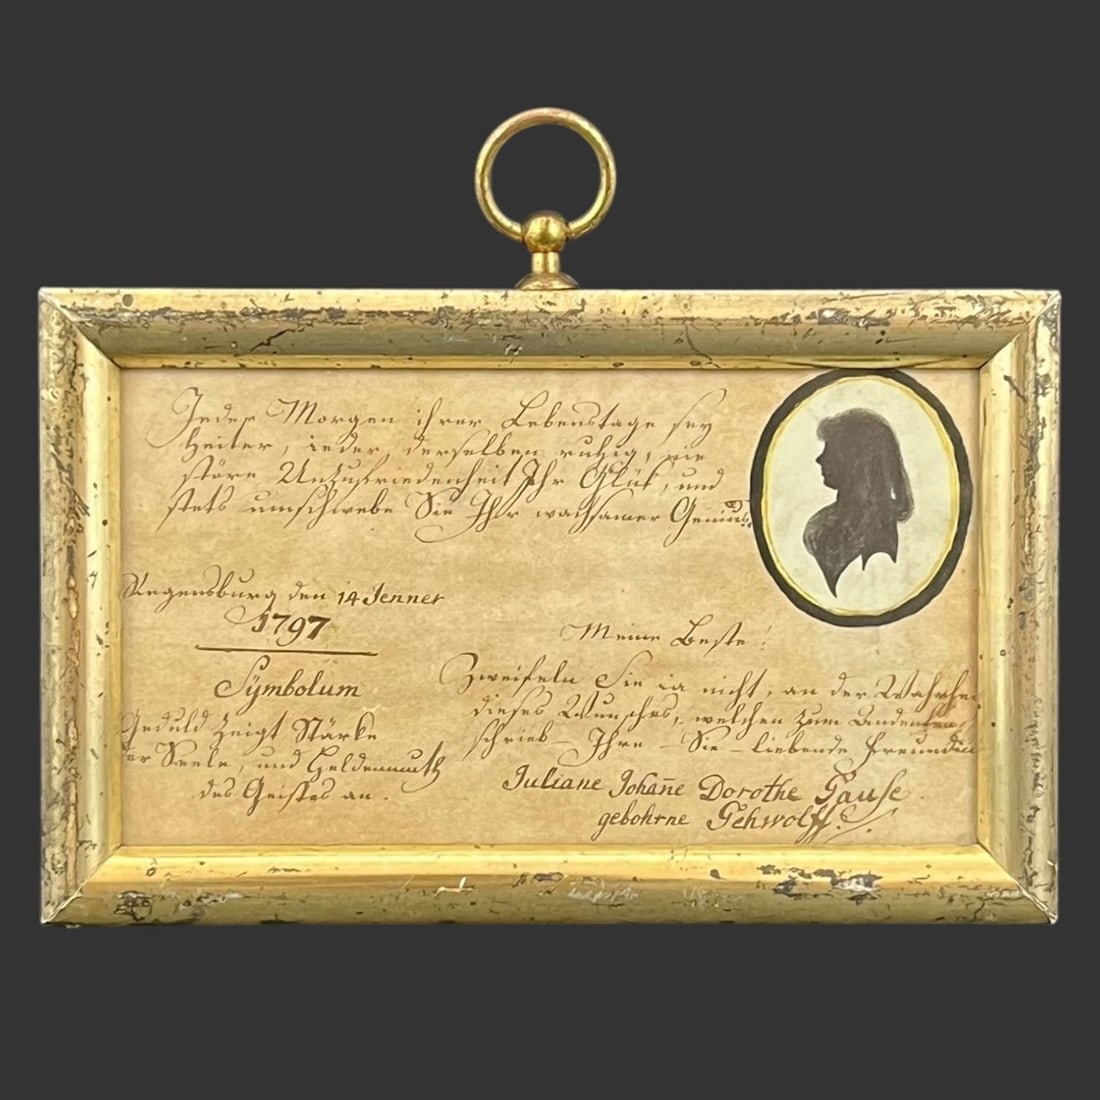 Jeder Morgen ihrer Lebenstage sey
heiter, ieder derselben ruhig, nie
störe Unzufriedenheit Ihr Glük, und
stets umschwebe Sie Ihr wachsamer Genius.
Regensburg den 14 Jenner
1797
Sÿmbolum
Geduld zeigt Stärke
der Seele, und Heldenmuth
des Geistes an.
Meine Beste!
Zweifeln Sie ia nicht, an der Wahrhei
dieses Wunsches, welchen zum Andenken
schrieb – Ihre – Sie – liebende Freundin
Juliane Johañe Dorothe
gebohrne